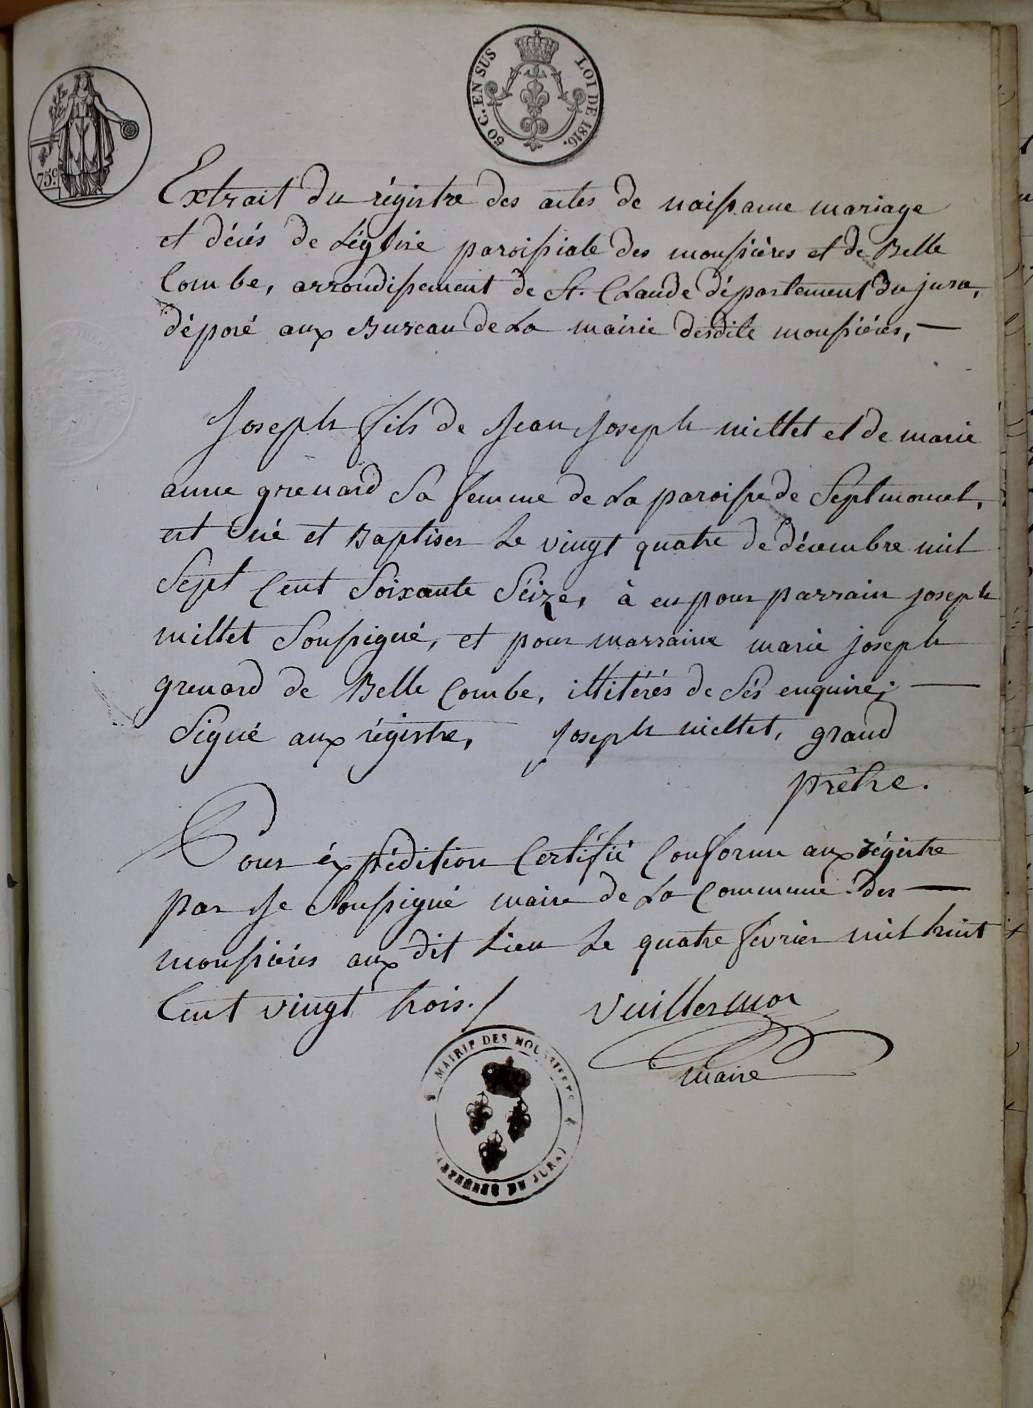 60 C. EN SUS LOI DE 1816.
75c
Extrait du régistre des actes de naissance mariage
et décés de Léglise paroissiale des moussières et de Belle
Combe, arrondissement de St. Claude département du jura,
déposé aux Bureau de La mairie desdite moussiéres, —
Joseph fils de Jean Joseph millet et de marie
anne grenard Sa femme de La paroisse de Septmoncel,
est né et Baptiser Le vingt quatre de décembre mil
Sept Cent Soixante Séize, à eu pour parrain joseph
millet Soussigné, et pour marraine marie joseph
grenard de Belle Combe, illitérés de Sés enquire; —
Signé aux régistre, Joseph millet, grand
prêtre.
Pour éxpédition Certifié Conforme aux régistre
par Je Soussigné maire de La Commune des —
moussiéres aux dit Lieu Le quatre février mil huit
Cent vingt trois./ Vuillermoz
maire
MAIRIE DES MOUSSIERES
DU JURA